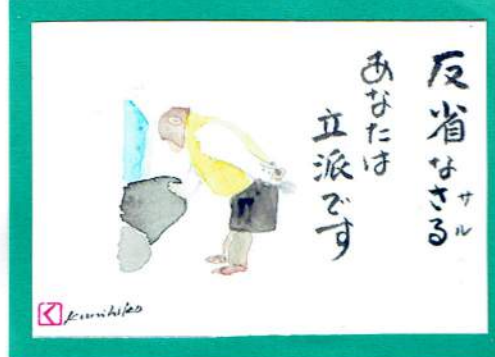 反省なさる
サル
あなたは
立派です
く
Kunihiko